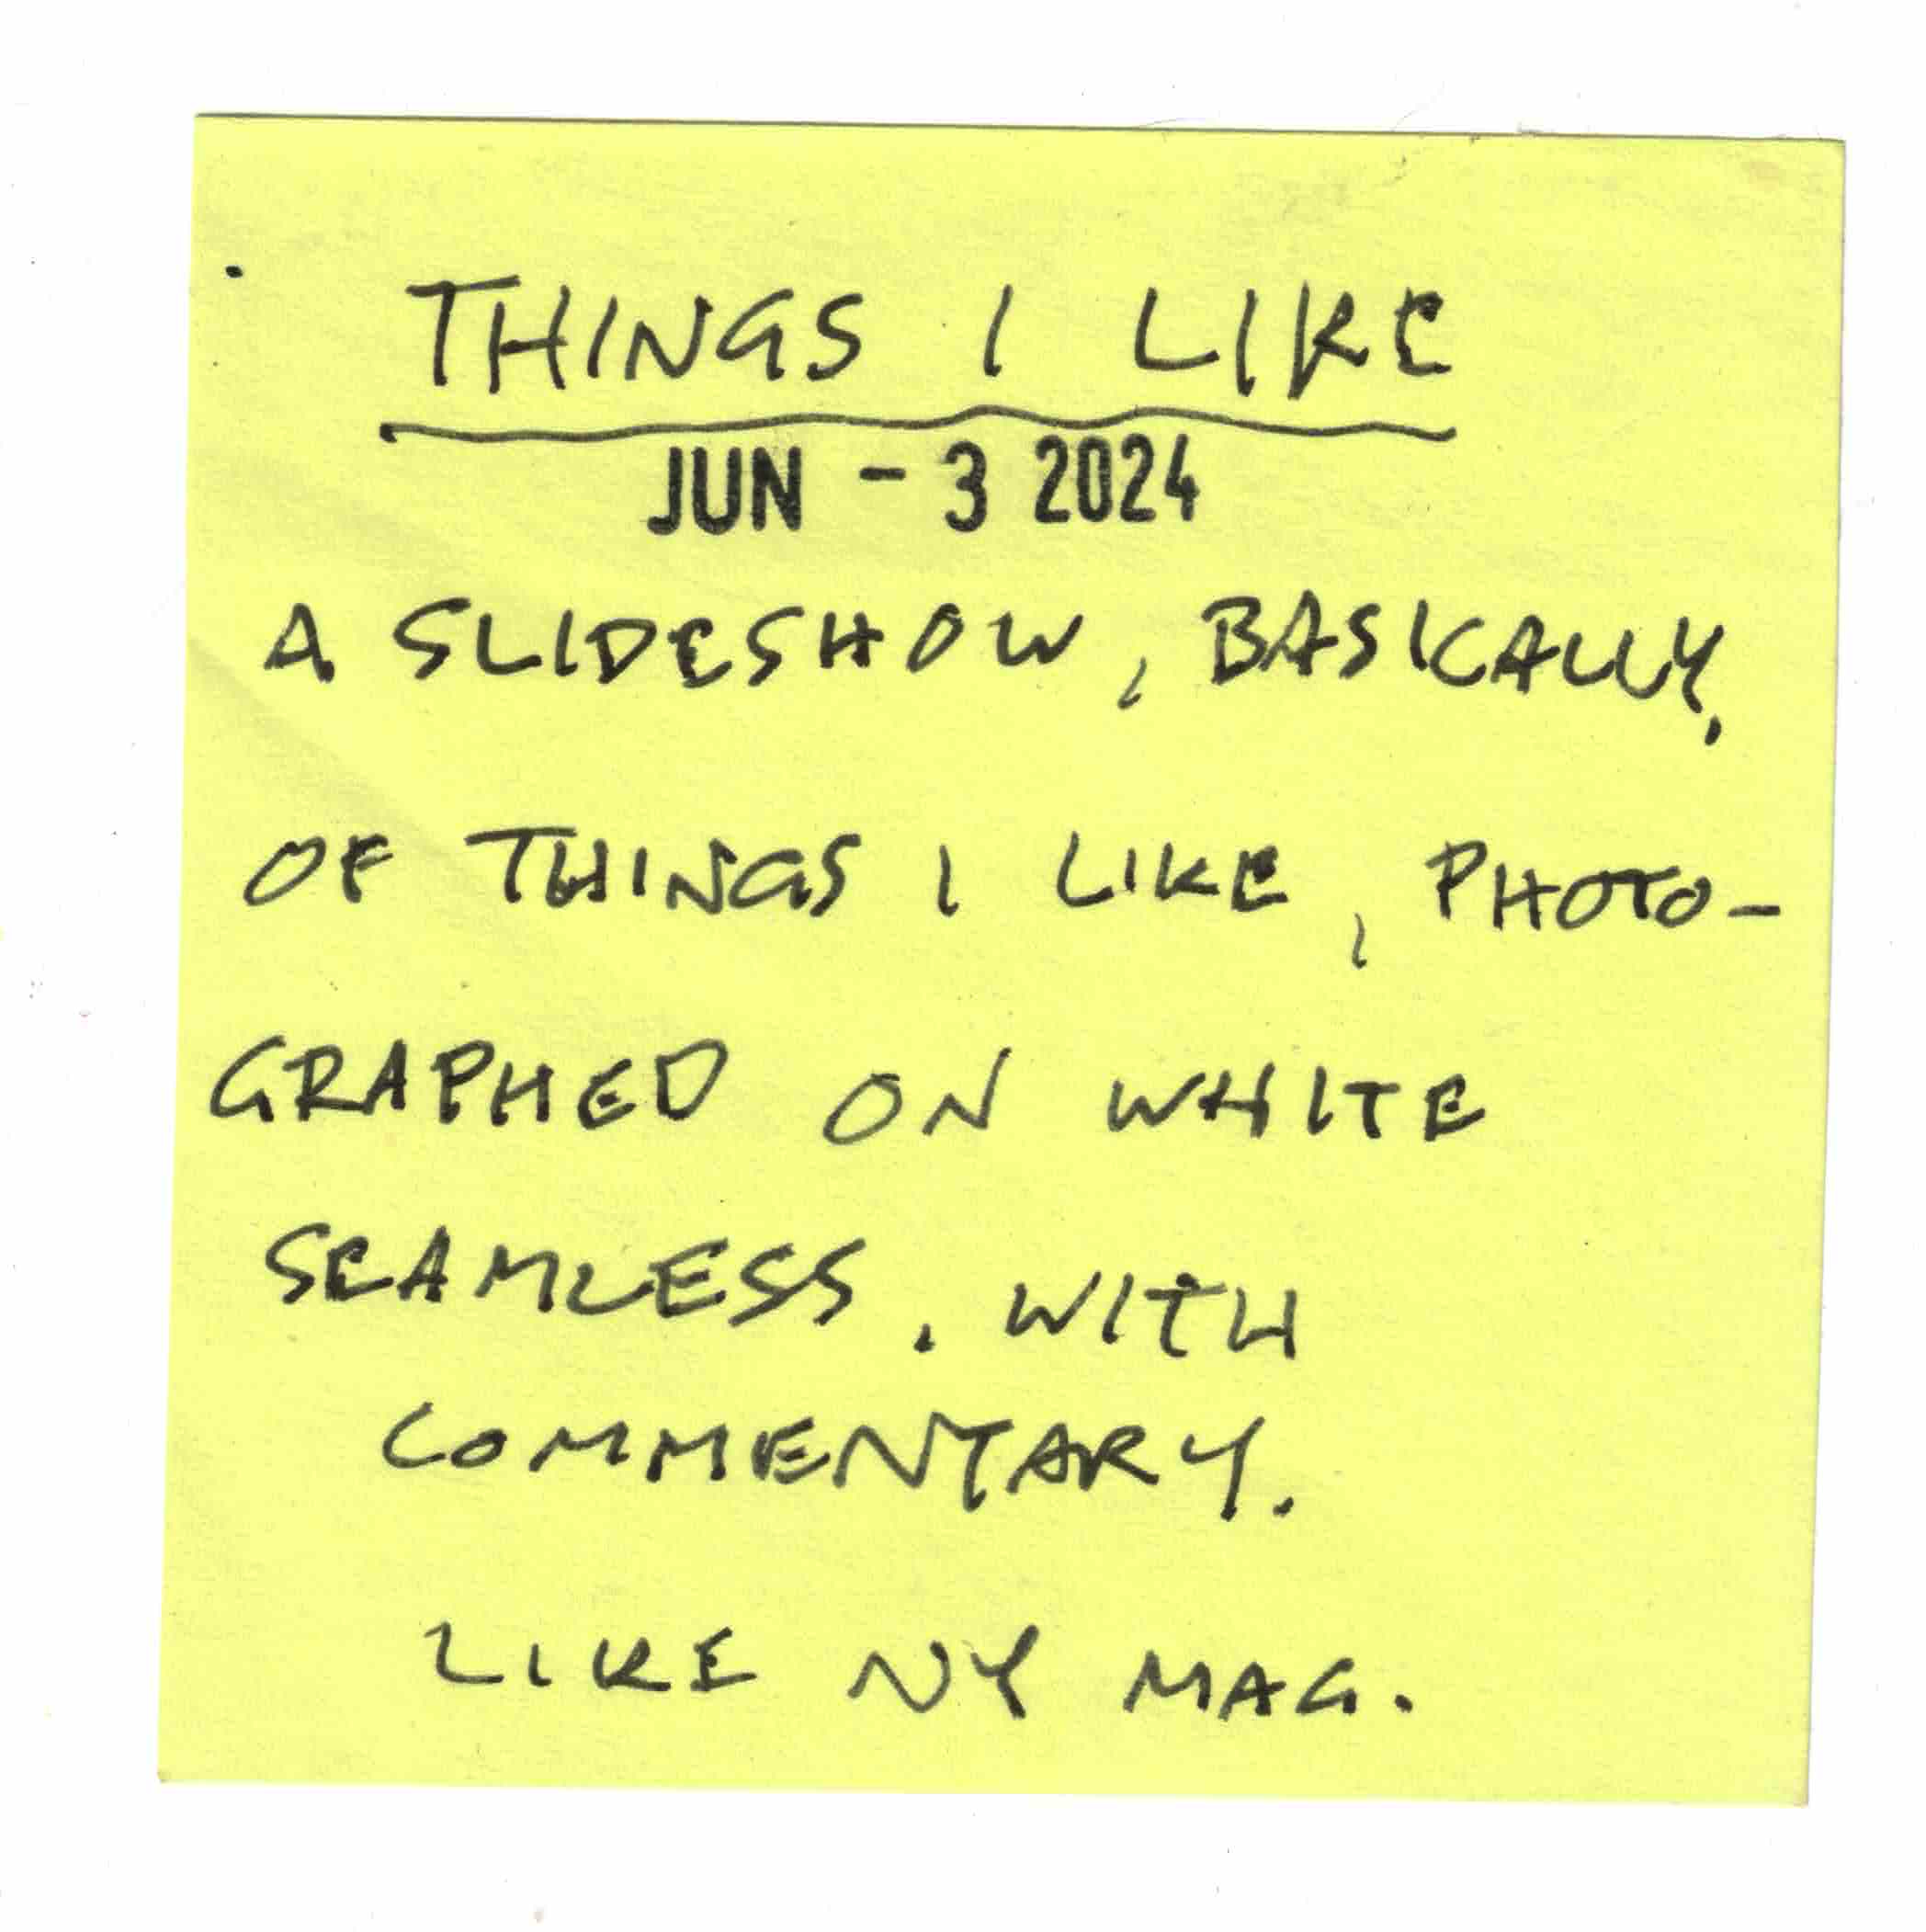 THINGS I LIKE
JUN - 3 2024
A SLIDESHOW, BASICALLY,
OF THINGS I LIKE, PHOTO-
GRAPHED ON WHITE
SEAMLESS, WITH
COMMENTARY.
LIKE NY MAG.